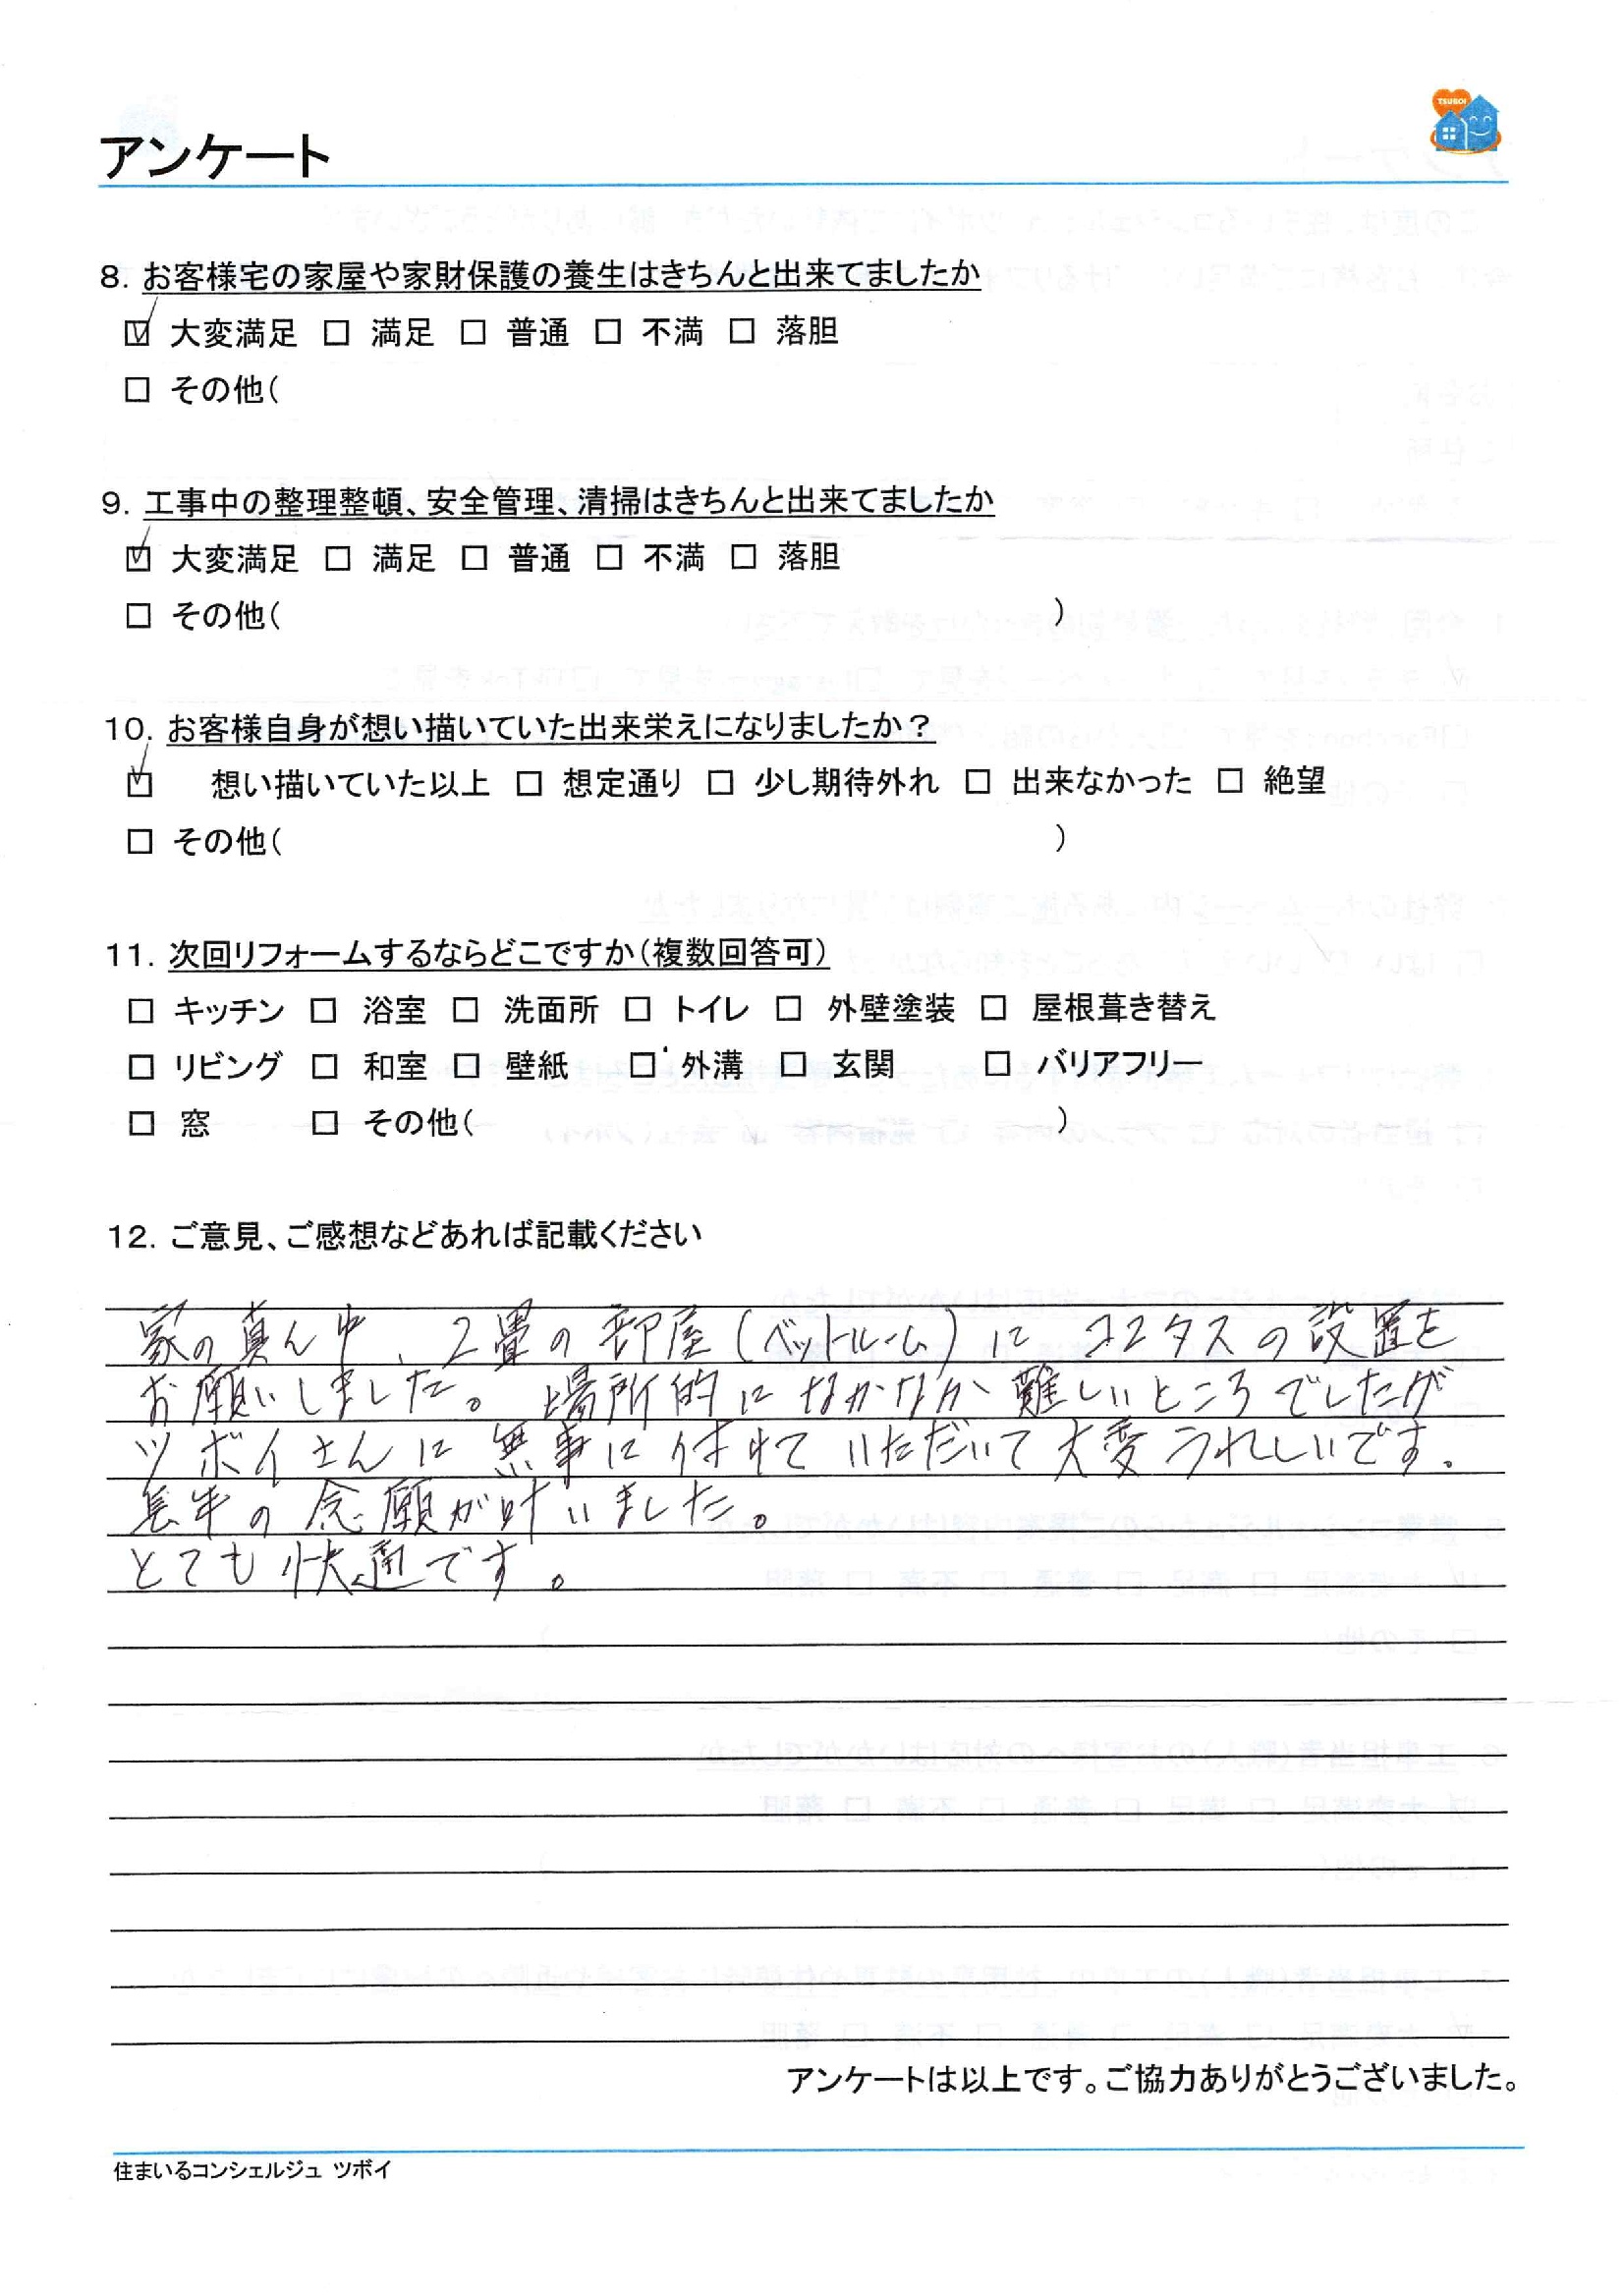 TSUBOI
アンケート
8. お客様宅の家屋や家財保護の養生はきちんと出来てましたか
☑ 大変満足 □ 満足 □ 普通 □ 不満 □ 落胆
□ その他(
9. 工事中の整理整頓、安全管理、清掃はきちんと出来てましたか
☑ 大変満足 □ 満足 □ 普通 □ 不満 □ 落胆
□ その他( )
10. お客様自身が想い描いていた出来栄えになりましたか？
☑ 想い描いていた以上 □ 想定通り □ 少し期待外れ □ 出来なかった □ 絶望
□ その他( )
11. 次回リフォームするならどこですか(複数回答可)
□ キッチン □ 浴室 □ 洗面所 □ トイレ □ 外壁塗装 □ 屋根葺き替え
□ リビング □ 和室 □ 壁紙 □ 外溝 □ 玄関 □ バリアフリー
□ 窓 □ その他( )
12. ご意見、ご感想などあれば記載ください
家の真ん中、2畳の部屋(ベットルーム)に ココタスの設置を
お願いしました。場所的になかなか難しいところでしたが
ツボイさんに無事に付けていただいて大変うれしいです。
長年の念願が叶いました。
とても快適です。
アンケートは以上です。ご協力ありがとうございました。
住まいるコンシェルジュ ツボイ